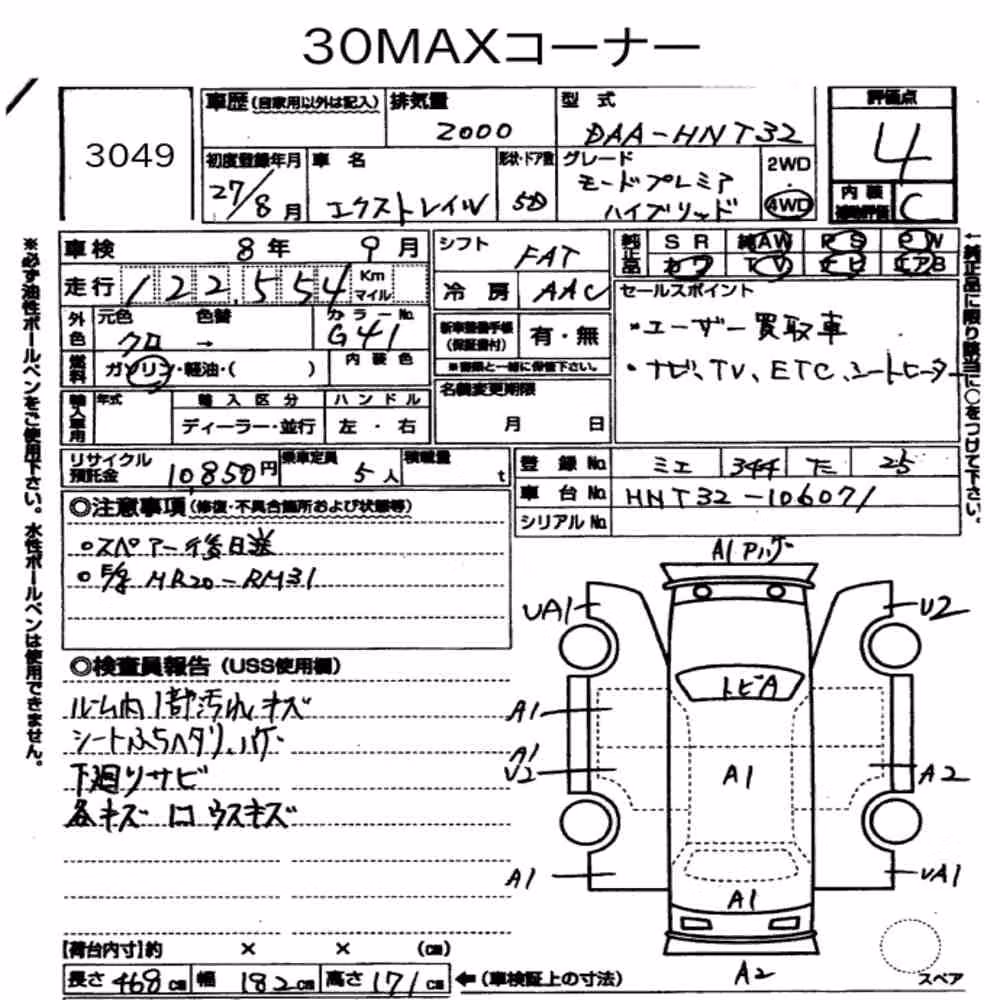 30MAXコーナー
3049
車歴(自家用以外は記入)
排気量 2000
型式 DAA-HNT32
評価点 4
初度登録年月 27/8月
車名 エクストレイル
形状・ドア数 5D
グレード モードプレミア ハイブリッド
2WD・4WD
内装補助評価 C
車検 8年 9月
走行 122,554 Km マイル
シフト FAT
冷房 AAC
純正品 SR 純AW PS PW
カワ TV ナビ エアB
外色 元色 クロ 色替 → カラーNo. G41
燃料 ガソリン・軽油・( )
内装色
新車整備手帳(保証書付) 有・無
※書類と一緒に保管下さい。
セールスポイント
・ユーザー買取車
・ナビ、TV、ETC、シートヒーター
輸入車用 年式 輸入区分 ハンドル
ディーラー・並行 左・右
名義変更期限
月 日
リサイクル預託金 10,850円
乗車定員 5人
積載量 t
登録No. ミエ 344 た 25
車台No. HNT32-106071
シリアルNo.
◎注意事項(修復・不具合箇所および状態等)
○スペアー後日送
○E/g MR20-RM31
◎検査員報告(USS使用欄)
ルーム内1部汚れ、キズ
シートふちヘタリ、ハゲ
下廻りサビ
各キズ ロ ウスキズ
【荷台内寸】約 × × (cm)
長さ 468cm 幅 182cm 高さ 171cm ←(車検証上の寸法)
A1 アハゲ
UA1
U2
トビA
A1
A1
U2
A1
A2
A1
UA1
A1
A2
スペア
※必ず油性ボールペンをご使用下さい。水性ボールペンは使用できません。
←純正品に限り該当に○をつけて下さい。